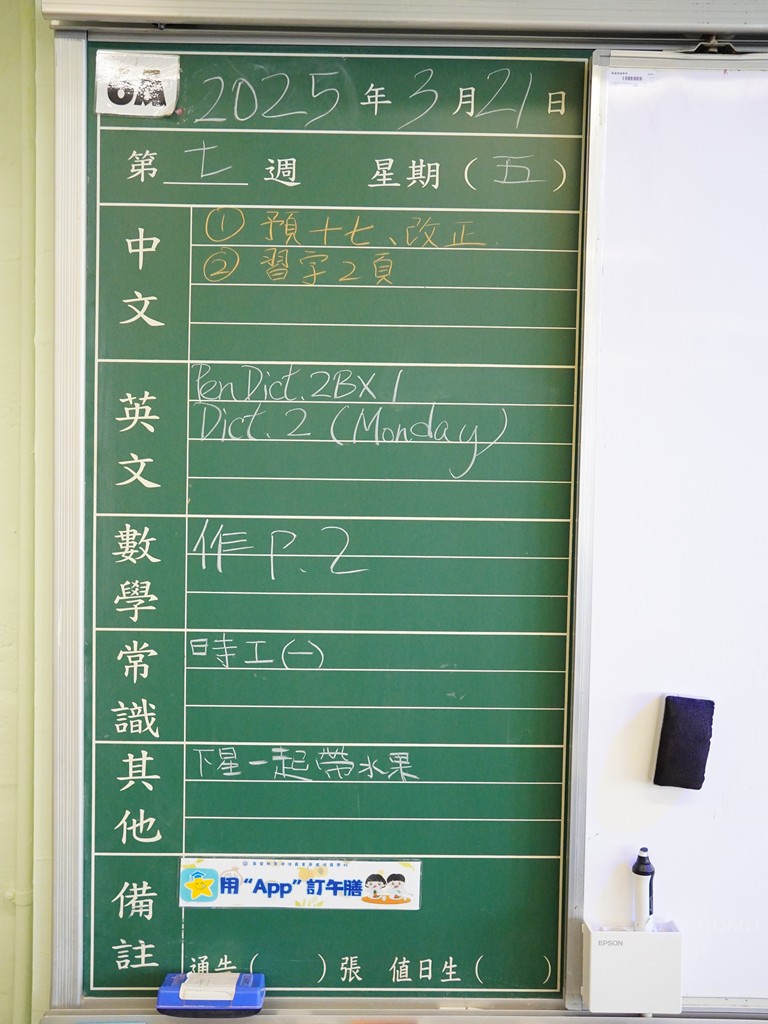 6A
2025年3月21日
第 七 週 星期（五）
中文
① 預十七、改正
② 習字2頁
英文
Pen Dict. 2B×1
Dict. 2 (Monday)
數學
作 P. 2
常識
時工(一)
其他
下星一起帶水果
備註
用“App”訂午膳
通告（ ）張 值日生（ ）
EPSON